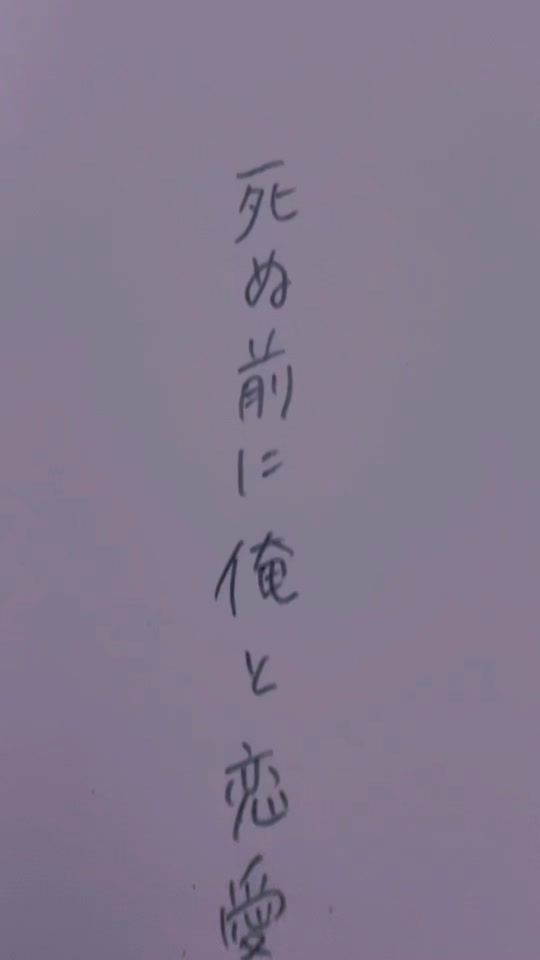 死ぬ前に俺と恋愛